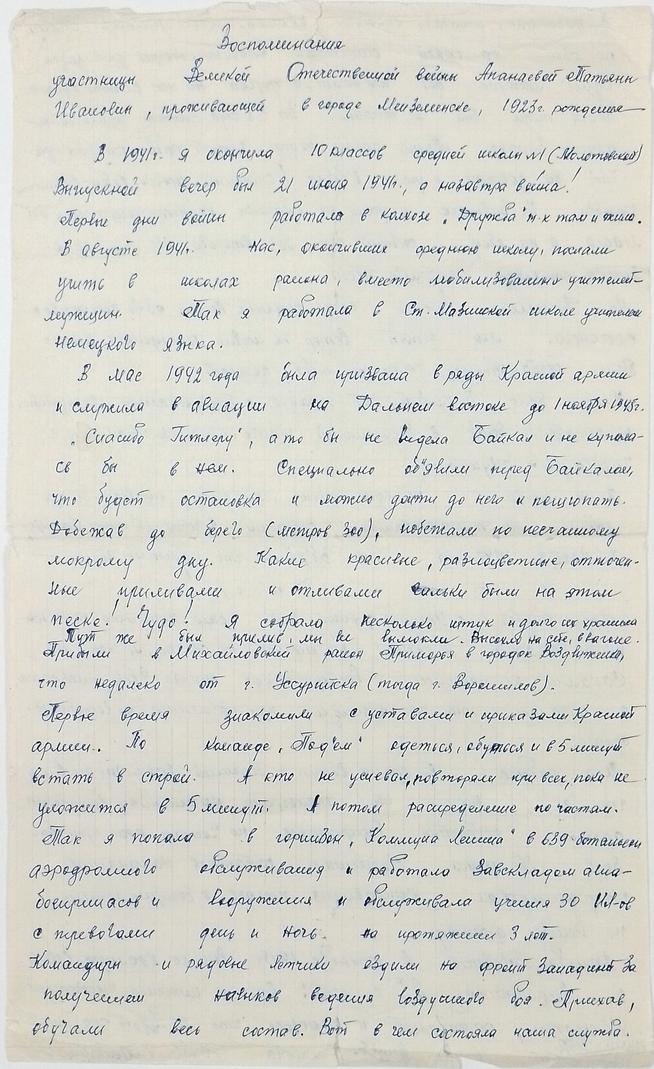 Воспоминания
участницы Великой Отечественной войны Апанаевой Татьяны
Ивановны, проживающей в городе Мензелинске, 1923г. рождения
В 1941г. я окончила 10 классов средней школы №1 (Молотовской)
Выпускной вечер был 21 июня 1941г., а назавтра война!
Первые дни войны работала в колхозе „Дружба" т-к там и жила.
В августе 1941г. Нас, окончивших среднюю школу, послали
учить в школах района, вместо мобилизованных учителей-
мужчин. Так я работала в Ст. Мазинской школе учителем
немецкого языка.
В мае 1942 года была призвана в ряды Красной армии
и служила в авиации на Дальнем востоке до 1 ноября 1945г.
„Спасибо Гитлеру", а то бы не видела Байкал и не купала-
сь бы в нем. Специально об'явили перед Байкалом,
что будет остановка и можно дойти до него и пощупать.
Добежав до берега (метров 300), побежали по песчаному
мокрому дну. Какие красивые, разноцветные, отточен-
ные приливами и отливами гальки были на этом
песке! Чудо! Я собрала несколько штук и долго их хранила
Тут же был прилив, мы все вымокли. Высохли на себе, в вагоне.
Прибыли в Михайловский район Приморья в городок Воздвиженка,
что недалеко от г. Уссурийска (тогда г. Ворошилов).
Первое время знакомили с уставами и приказами Красной
армии. По команде „Под'ем" одеться, обуться и в 5 минут
встать в строй. А кто не успевал, повторяли при всех, пока не
уложится в 5 минут. А потом распределение по частям.
Так я попала в гарнизон „Коммуна Ленина" в 639 батальон
аэродромного обслуживания и работала Завскладом авиа-
боеприпасов и вооружения и обслуживала учения 30 Ил-ов
с тревогами день и ночь. на протяжении 3 лет.
Командиры и рядовые лётчики ездили на фронт Западный за
получением навыков ведения воздушного боя. Приехав,
обучали весь состав. Вот в чем состояла наша служба.